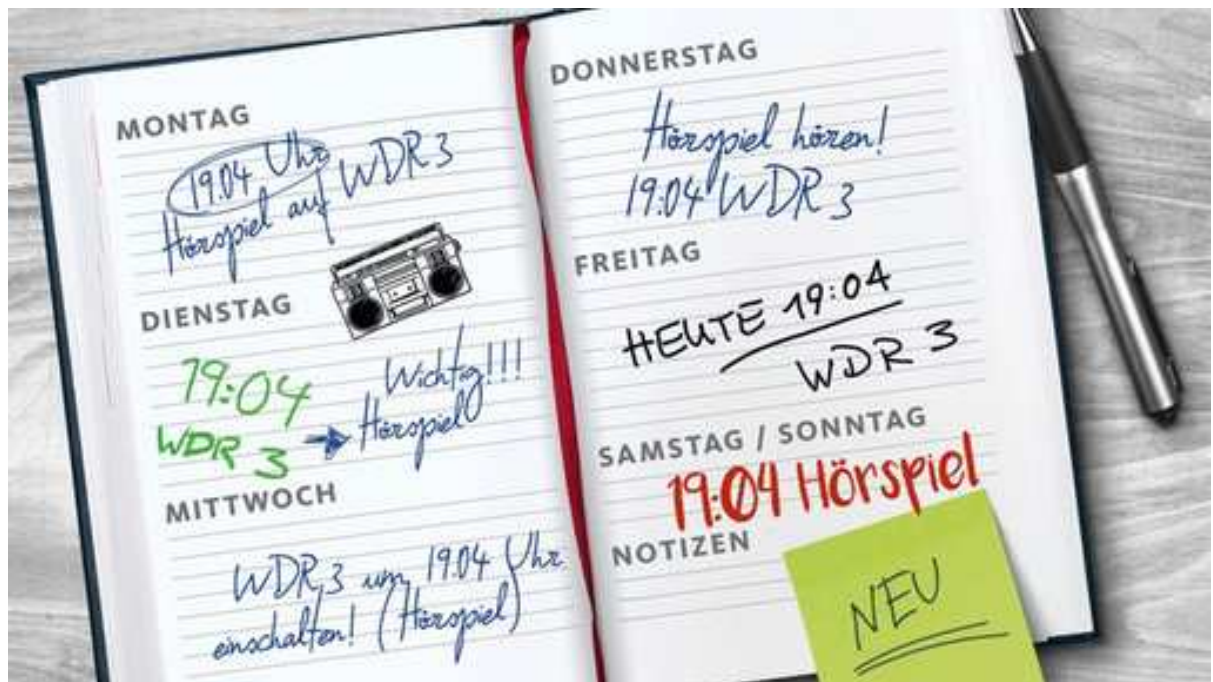 MONTAG
19.04 Uhr
Hörspiel auf WDR 3
DIENSTAG
19:04 Wichtig!!!
WDR 3 → Hörspiel
MITTWOCH
WDR 3 um 19.04 Uhr
einschalten! (Hörspiel)
DONNERSTAG
Hörspiel hören!
19:04 WDR 3
FREITAG
HEUTE 19:04
WDR 3
SAMSTAG / SONNTAG
19:04 Hörspiel
NOTIZEN
NEU